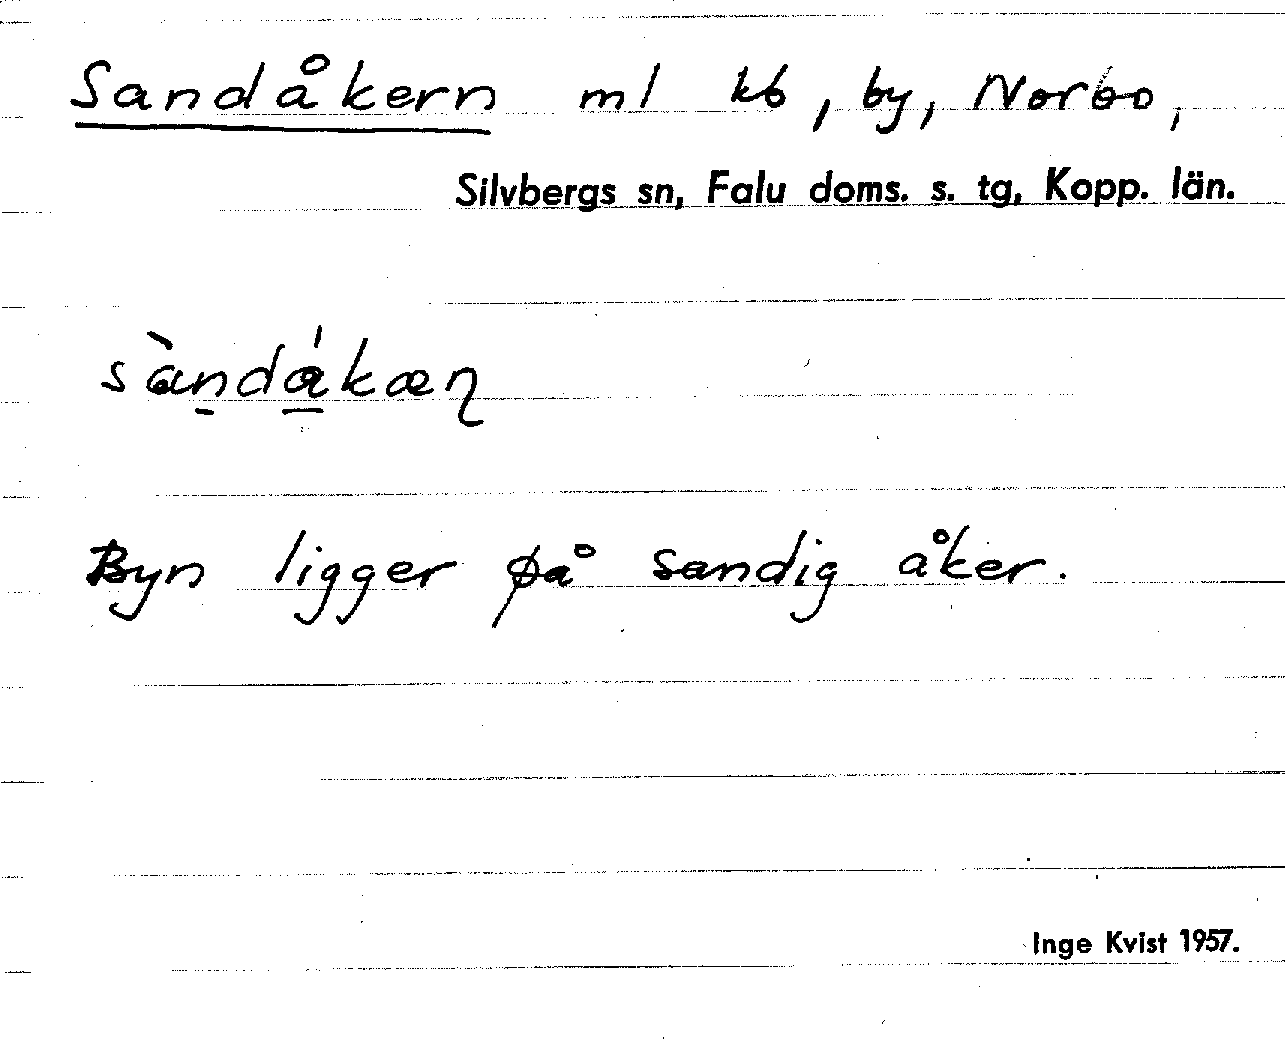 Sandåkern ml kb, by, Norbo,
Silvbergs sn, Falu doms. s. tg, Kopp. län.
Byn ligger på sandig åker.
Inge Kvist 1957.